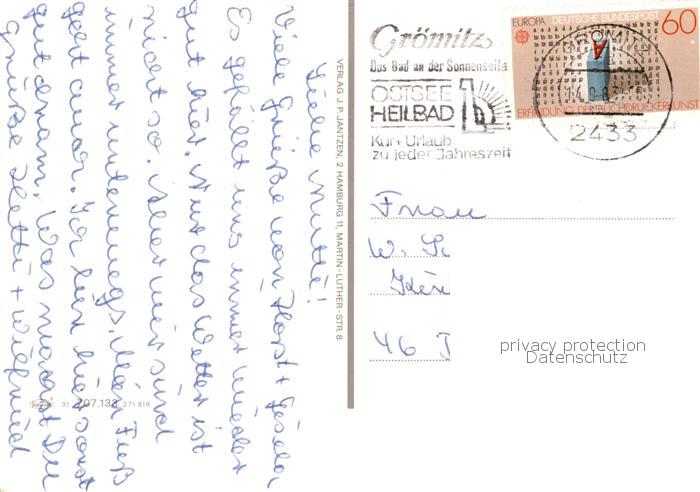 Liebe Mutti!
Viele Grüße von Horst + Gisela.
Es gefällt uns immer wieder
gut hier. Nur das Wetter ist
nicht so. Aber wir sind
immer unterwegs. Mein Fuß
geht zwar. Ich bin hier sonst
gut dran. Was machst Du
Grüße Hetti + Wilfried
VERLAG J. P. JANTZEN, 2 HAMBURG 11, MARTIN-LUTHER-STR. 8
31 707.133 271 819
Grömitz
Das Bad an der Sonnenseite
OSTSEE
HEILBAD
Kur + Urlaub
zu jeder Jahreszeit
EUROPA DEUTSCHE BUNDESPOST 60
A
ERFINDUNG DER BUCHDRUCKERKUNST
GRÖMITZ
2433
Frau
W. S
46
privacy protection
Datenschutz